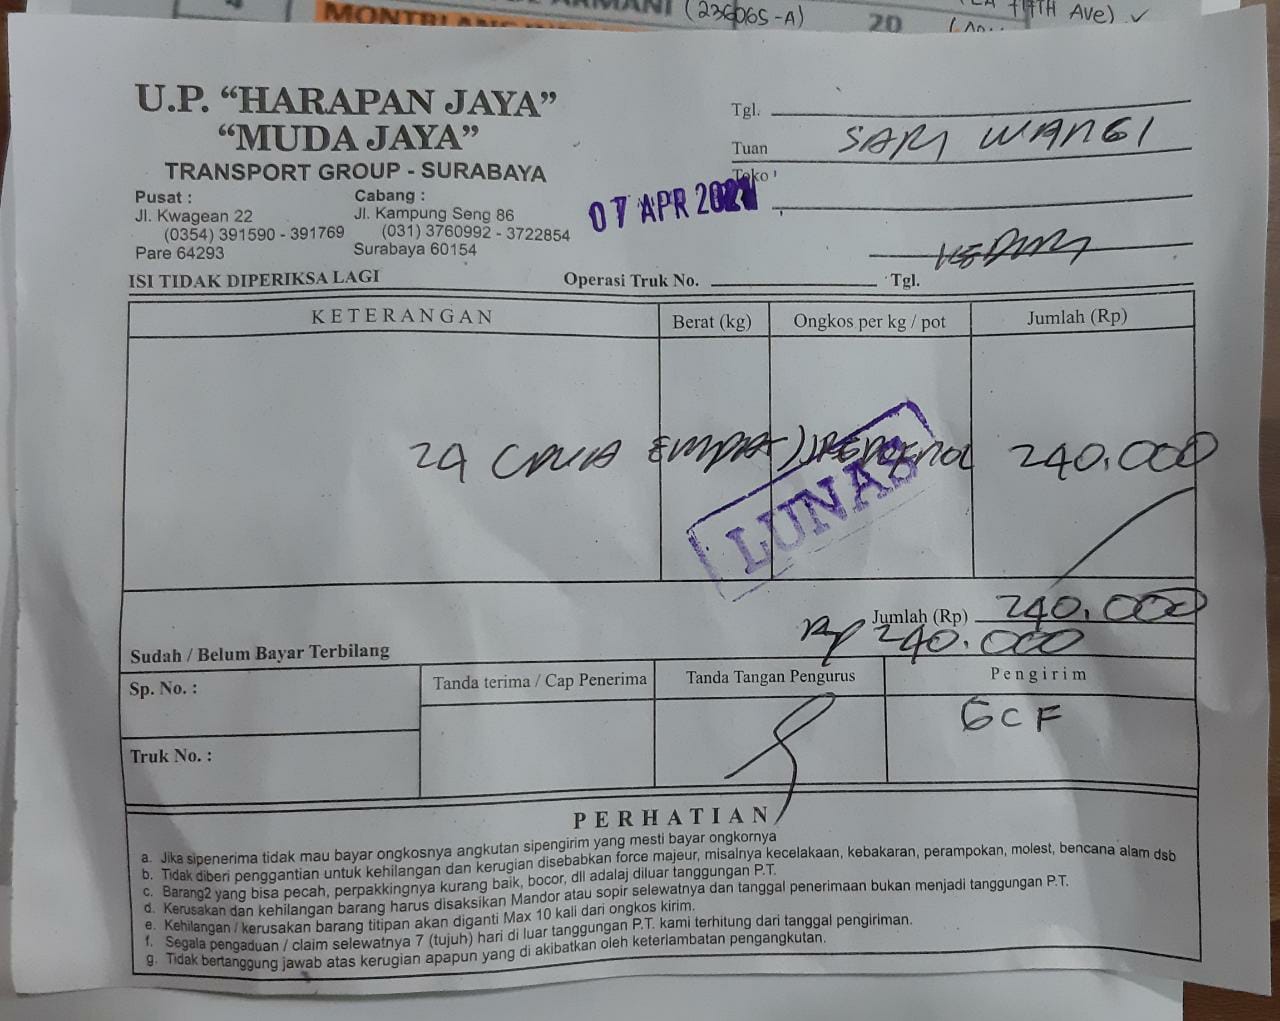 ARMANI (236065-A)
FIFTH Ave) ✓
20
U.P. “HARAPAN JAYA”
“MUDA JAYA”
TRANSPORT GROUP - SURABAYA
Pusat :
Jl. Kwagean 22
(0354) 391590 - 391769
Pare 64293
Cabang :
Jl. Kampung Seng 86
(031) 3760992 - 3722854
Surabaya 60154
Tgl.
Tuan SARI WANGI
Toko
07 APR 202
KEDIRI
ISI TIDAK DIPERIKSA LAGI
Operasi Truk No.
Tgl.
KETERANGAN
Berat (kg)
Ongkos per kg / pot
Jumlah (Rp)
24 240.000
LUNAS
Jumlah (Rp) 240.000
Sudah / Belum Bayar Terbilang Rp 240.000
Sp. No. :
Truk No. :
Tanda terima / Cap Penerima
Tanda Tangan Pengurus
Pengirim
GCF
PERHATIAN
a. Jika sipenerima tidak mau bayar ongkosnya angkutan sipengirim yang mesti bayar ongkornya
b. Tidak diberi penggantian untuk kehilangan dan kerugian disebabkan force majeur, misalnya kecelakaan, kebakaran, perampokan, molest, bencana alam dsb
c. Barang2 yang bisa pecah, perpakkingnya kurang baik, bocor, dll adalaj diluar tanggungan P.T.
d. Kerusakan dan kehilangan barang harus disaksikan Mandor atau sopir selewatnya dan tanggal penerimaan bukan menjadi tanggungan P.T.
e. Kehilangan / kerusakan barang titipan akan diganti Max 10 kali dari ongkos kirim.
f. Segala pengaduan / claim selewatnya 7 (tujuh) hari di luar tanggungan P.T. kami terhitung dari tanggal pengiriman.
g. Tidak bertanggung jawab atas kerugian apapun yang di akibatkan oleh keterlambatan pengangkutan.